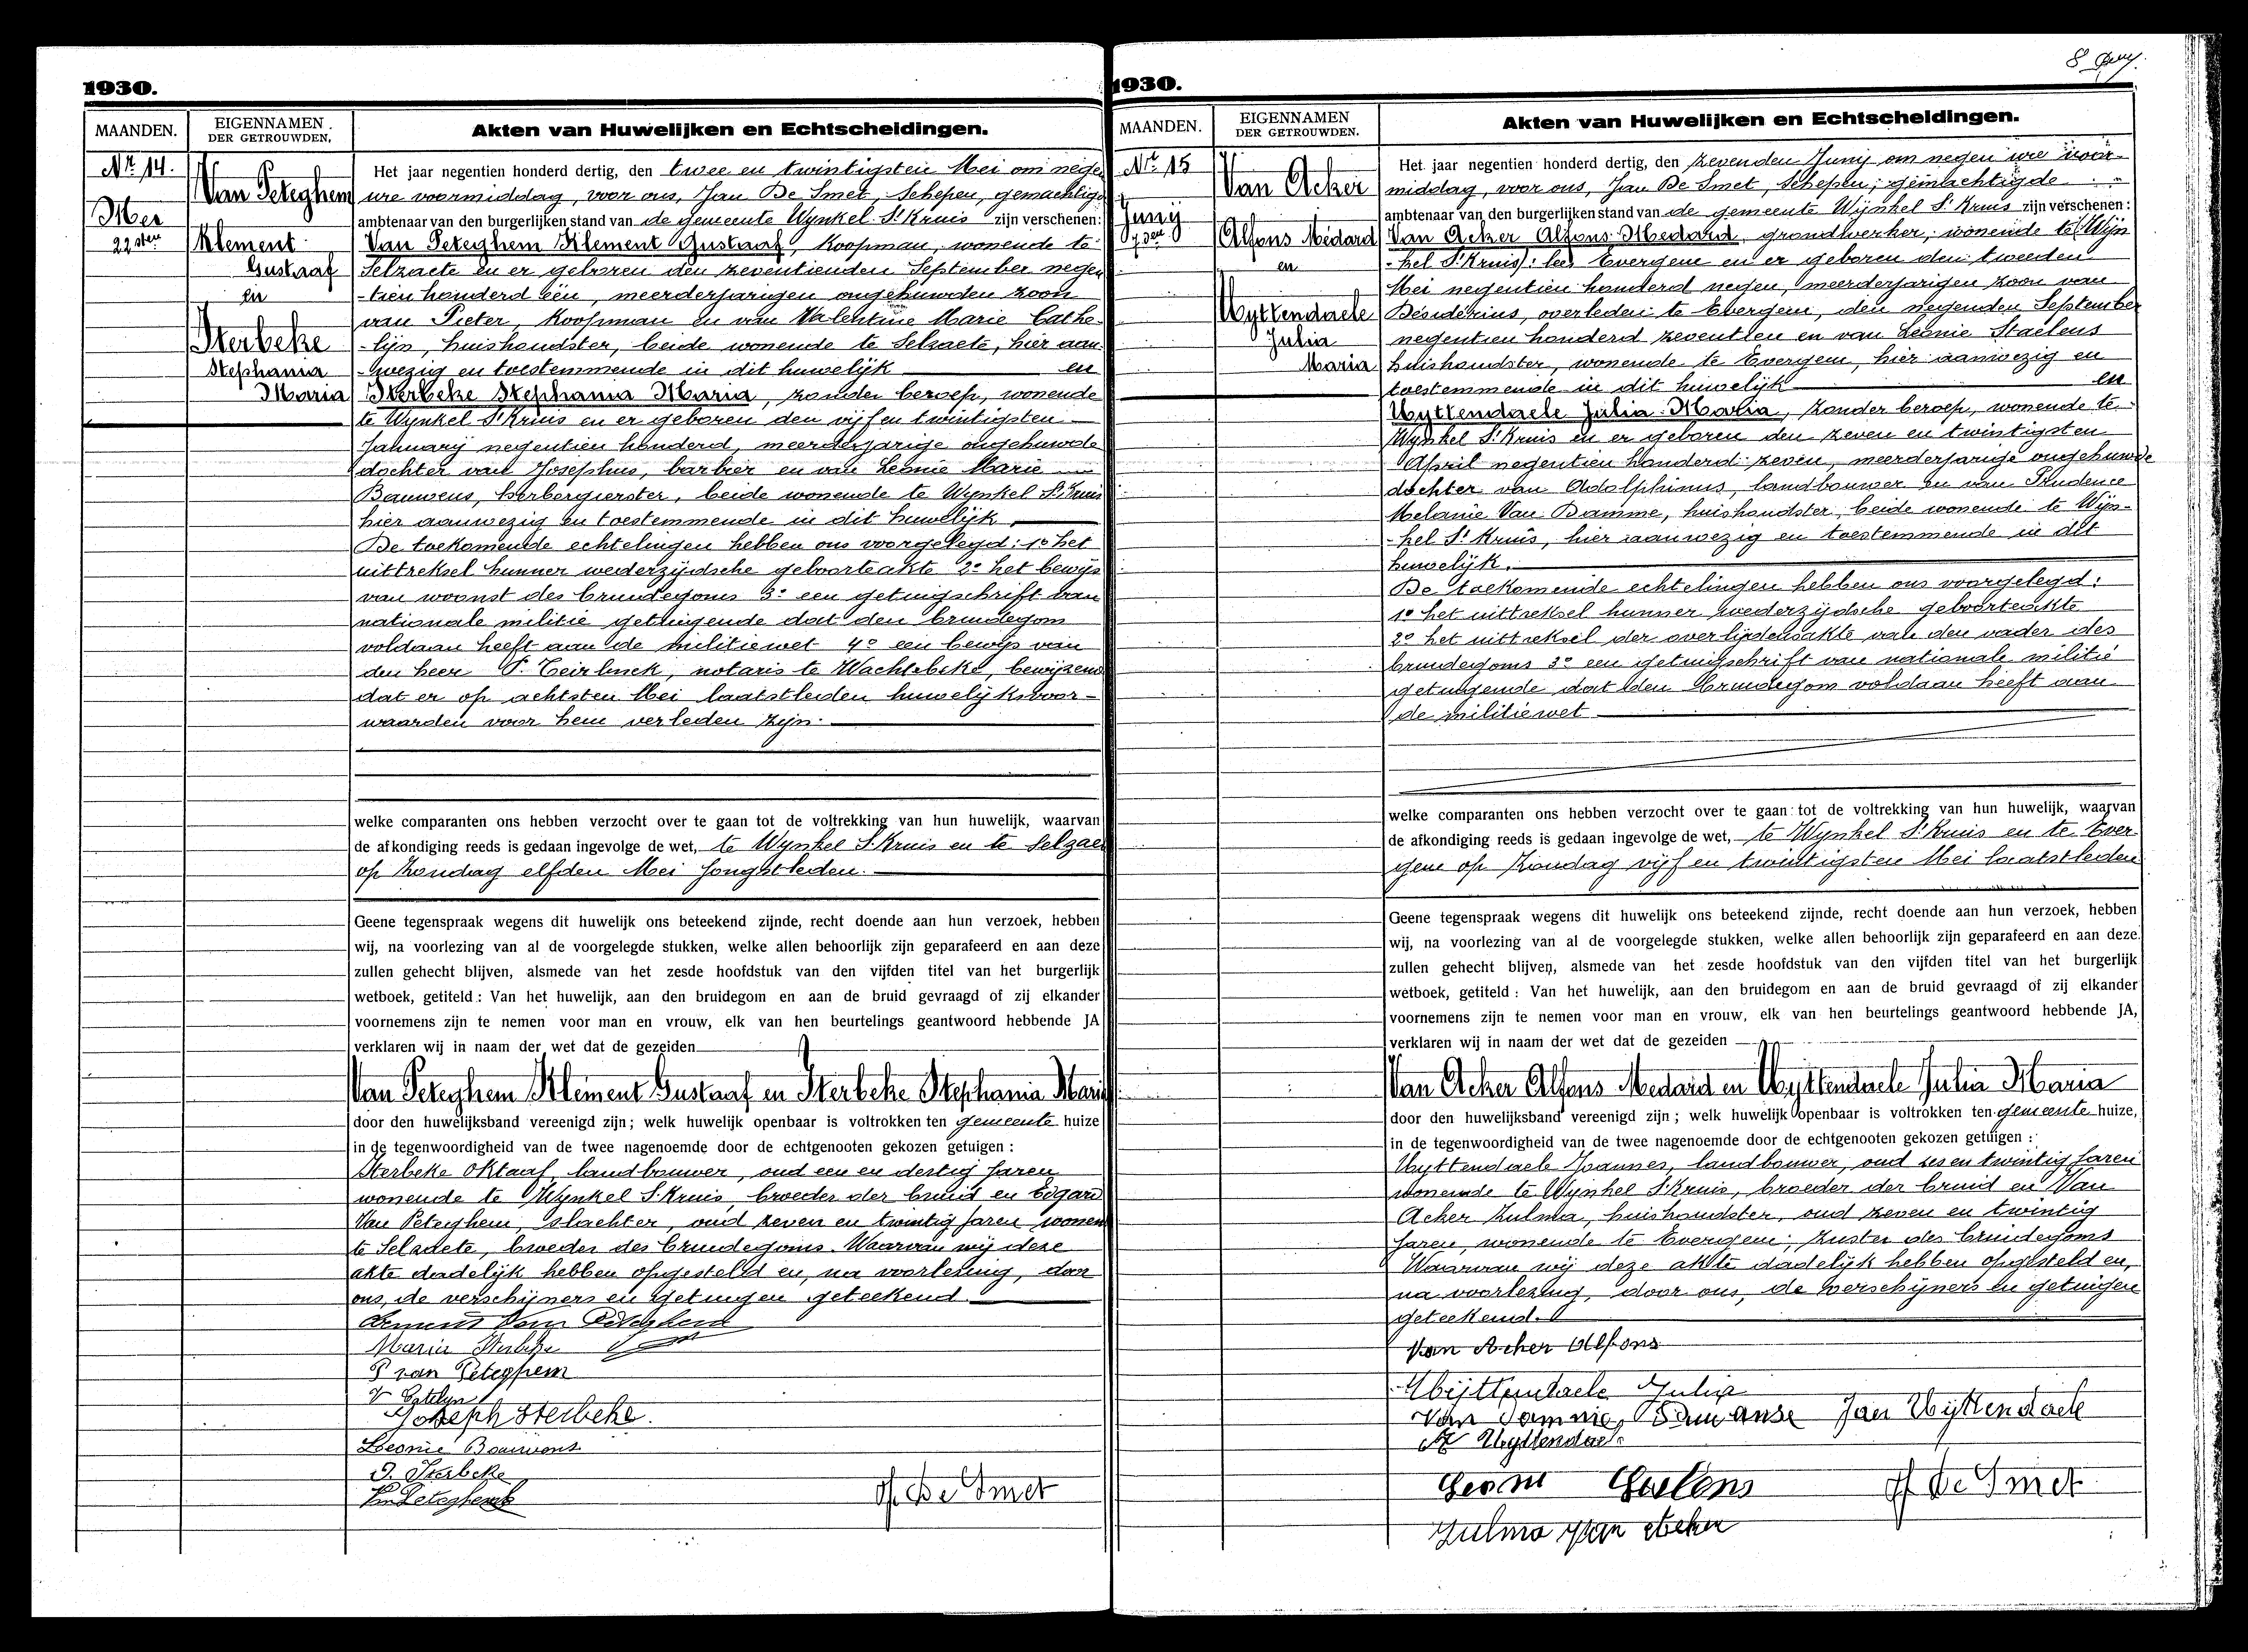 8 Juny.
1930.
MAANDEN.
EIGENNAMEN
DER GETROUWDEN.
Akten van Huwelijken en Echtscheidingen.
Nr. 14.
Mei
22sten
Van Peteghem
Klement
Gustaaf
en
Sterbeke
Stephania
Maria
Het jaar negentien honderd dertig, den twee en twintigsten Mei om negen
ure voormiddag, voor ons, Jan De Smet, Schepen, gemachtigde
ambtenaar van den burgerlijken stand van de gemeente Wynkel St Kruis zijn verschenen:
Van Peteghem Klement Gustaaf, Koopman, wonende te
Selzaete en er geboren den zeventienden September negen
-tien honderd één, meerderjarigen ongehuwden zoon
van Pieter, Koopman en van Valentine Marie Cathe-
-lijn, huishoudster, beide wonende te Selzaete, hier aan-
-wezig en toestemmende in dit huwelijk en
Sterbeke Stephania Maria, zonder beroep, wonende
te Wynkel St Kruis en er geboren den vijf en twintigsten
January negentien honderd, meerderjarige ongehuwde
dochter van Josephus, barbier en van Leonie Marie
Bauwens, herbergierster, beide wonende te Wynkel St Kruis
hier aanwezig en toestemmende in dit huwelijk.
De toekomende echtelingen hebben ons voorgelegd: 1o het
uittreksel hunner wederzijdsche geboorteakte 2o het bewijs
van woonst des bruidegoms 3o een getuigschrift van
nationale militie getuigende dat den bruidegom
voldaan heeft aan de militiewet 4o een bewijs van
den heer P. Teirlinck, notaris te Wachtebeke, bewijzend
dat er op achtsten Mei laatstleden huwelijksvoor-
waarden voor hem verleden zijn.
welke comparanten ons hebben verzocht over te gaan tot de voltrekking van hun huwelijk, waarvan
de afkondiging reeds is gedaan ingevolge de wet, te Wynkel St Kruis en te Selzaete
op Zondag elfden Mei jongstleden.
Geene tegenspraak wegens dit huwelijk ons beteekend zijnde, recht doende aan hun verzoek, hebben
wij, na voorlezing van al de voorgelegde stukken, welke allen behoorlijk zijn geparafeerd en aan deze
zullen gehecht blijven, alsmede van het zesde hoofdstuk van den vijfden titel van het burgerlijk
wetboek, getiteld : Van het huwelijk, aan den bruidegom en aan de bruid gevraagd of zij elkander
voornemens zijn te nemen voor man en vrouw, elk van hen beurtelings geantwoord hebbende JA
verklaren wij in naam der wet dat de gezeiden
Van Peteghem Klement Gustaaf en Sterbeke Stephania Maria
door den huwelijksband vereenigd zijn; welk huwelijk openbaar is voltrokken ten gemeente huize
in de tegenwoordigheid van de twee nagenoemde door de echtgenooten gekozen getuigen :
Sterbeke Oktaaf, landbouwer, oud een en dertig jaren
wonende te Wynkel St Kruis, broeder der bruid en Edgard
Van Peteghem, slachter, oud zeven en twintig jaren wonen
te Selzaete, broeder des bruidegoms. Waarvan wij deze
akte dadelijk hebben opgesteld en, na voorlezing, door
ons, de verschijners en getuigen geteekend.
Clement Van Peteghem
Maria Sterbeke
P van Peteghem
V Catelyn
Joseph Sterbeke.
Leonie Bauwens
O. Sterbeke
Van Peteghem E
J. De Smet
1930.
MAANDEN.
EIGENNAMEN
DER GETROUWDEN.
Akten van Huwelijken en Echtscheidingen.
Nr. 15
Junij
7den
Van Acker
Alfons Médard
en
Uyttendaele
Julia
Maria
Het jaar negentien honderd dertig, den zevenden Junij om negen ure voor-
middag, voor ons, Jan De Smet, Schepen, gemachtigde
ambtenaar van den burgerlijken stand van de gemeente Wijnkel St Kruis zijn verschenen :
Van Acker Alfons Medard, grondwerker, wonende te (Wijn
-kel St Kruis) : lees Evergem en er geboren den tweeden
Mei negentien honderd negen, meerderjarigen zoon van
Désidérius, overleden te Evergem, den negenden September
negentien honderd zeventien en van Leonie Staelens
huishoudster, wonende te Evergem, hier aanwezig en
toestemmende in dit huwelijk en
Uyttendaele Julia Maria, zonder beroep, wonende te
Wynkel St Kruis en er geboren den zeven en twintigsten
April negentien honderd zeven, meerderjarige ongehuwde
dochter van Adolphinus, landbouwer en van Prudence
Melanie Van Damme, huishoudster, beide wonende te Wijn-
-kel St Kruis, hier aanwezig en toestemmende in dit
huwelijk.
De toekomende echtelingen hebben ons voorgelegd:
1o het uittreksel hunner wederzijdsche geboorteakte
2o het uittreksel der overlijdensakte van den vader des
bruidegoms 3o een getuigschrift van nationale militie
getuigende dat den bruidegom voldaan heeft aan
de militiewet
welke comparanten ons hebben verzocht over te gaan tot de voltrekking van hun huwelijk, waarvan
de afkondiging reeds is gedaan ingevolge de wet, te Wynkel St Kruis en te Ever
gem op Zondag vijf en twintigsten Mei laatstleden
Geene tegenspraak wegens dit huwelijk ons beteekend zijnde, recht doende aan hun verzoek, hebben
wij, na voorlezing van al de voorgelegde stukken, welke allen behoorlijk zijn geparafeerd en aan deze
zullen gehecht blijven, alsmede van het zesde hoofdstuk van den vijfden titel van het burgerlijk
wetboek, getiteld : Van het huwelijk, aan den bruidegom en aan de bruid gevraagd of zij elkander
voornemens zijn te nemen voor man en vrouw, elk van hen beurtelings geantwoord hebbende JA,
verklaren wij in naam der wet dat de gezeiden
Van Acker Alfons Medard en Uyttendaele Julia Maria
door den huwelijksband vereenigd zijn ; welk huwelijk openbaar is voltrokken ten gemeente huize,
in de tegenwoordigheid van de twee nagenoemde door de echtgenooten gekozen getuigen :
Uyttendaele Joannes, landbouwer, oud zes en twintig jaren
wonende te Wynkel St Kruis, broeder der bruid en Van
Acker Zulma, huishoudster, oud zeven en twintig
jaren, wonende te Evergem, zuster des bruidegoms
Waarvan wij deze akte dadelijk hebben opgesteld en,
na voorlezing, door ons, de verschijners en getuigen
geteekend.
Van Acker Alfons
Uijttendaele Julia
Van Damme Jan Uijttendaele
A Uyttendaele
Leonie Staelens J De Smet
Zulma Van Acker